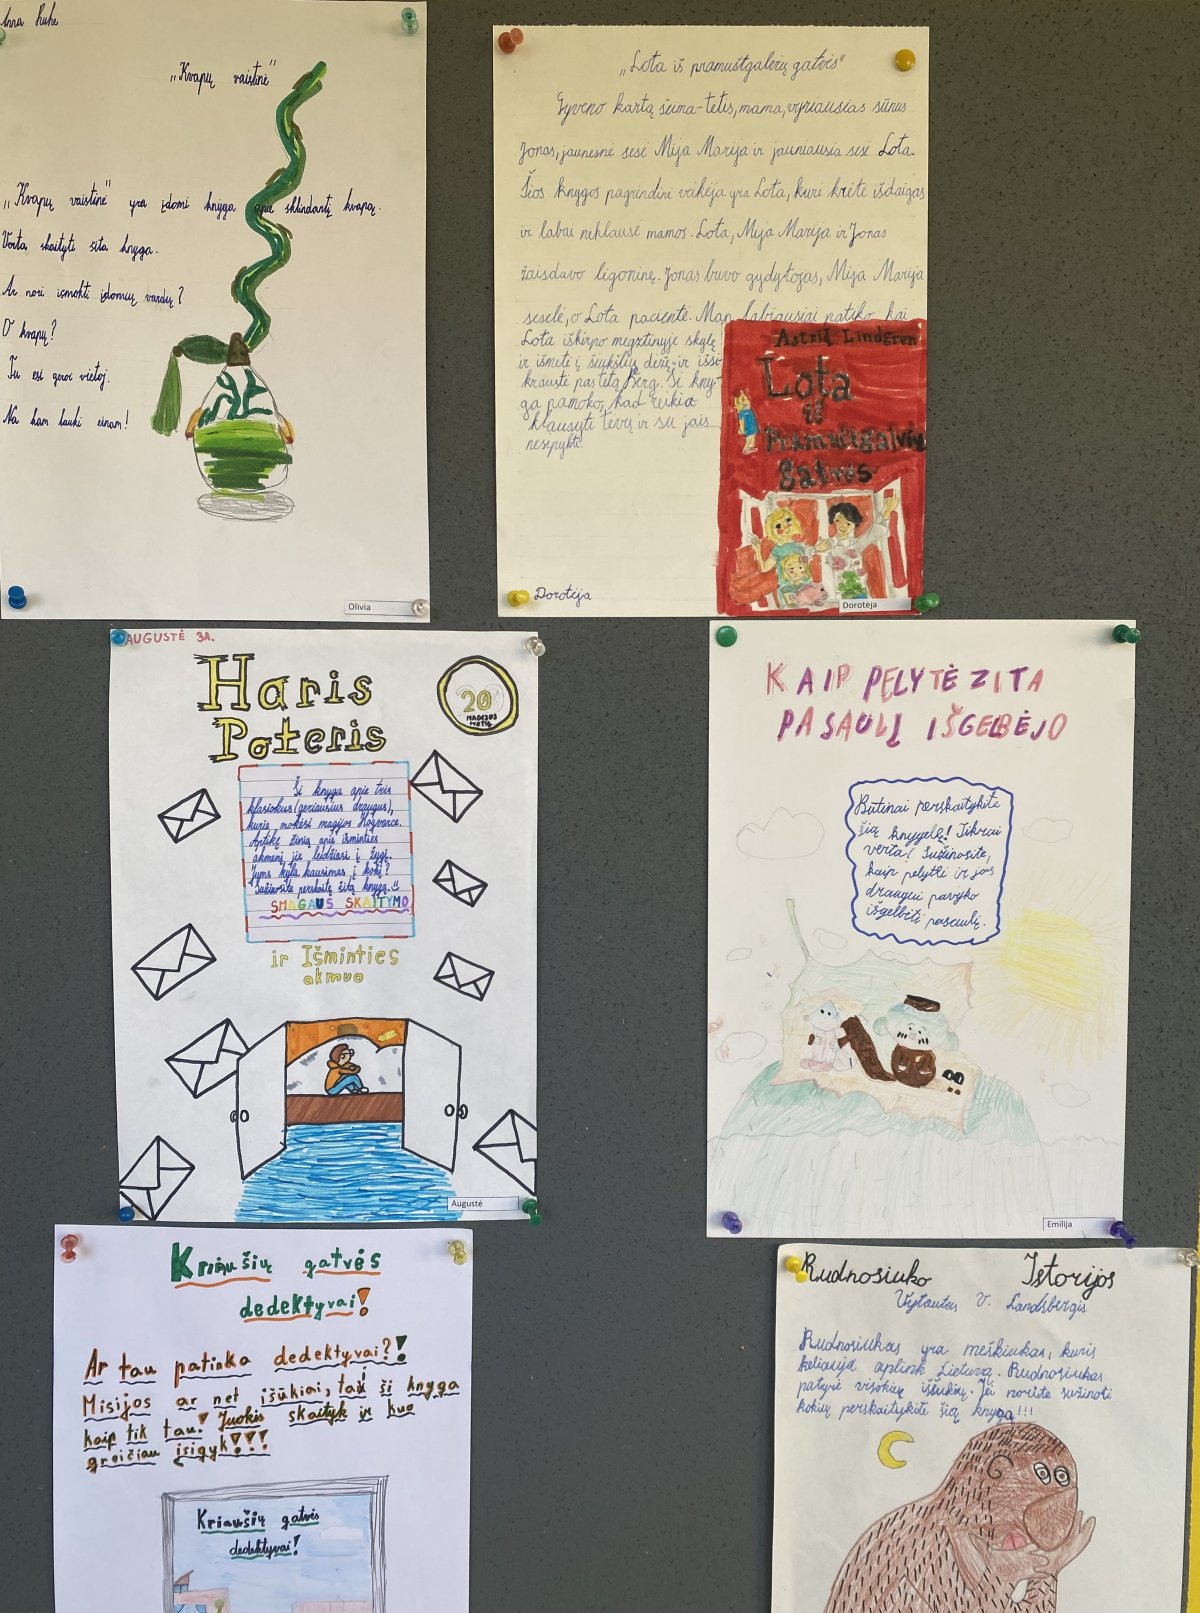 Anna Ruhe
„Kvapų vaistinė"
„Kvapų vaistinė" yra įdomi knyga apie sklindantį kvapą.
Verta skaityti šita knyga.
Ar nori ismokti įdomių vardų?
O kvapų?
Tu esi geroi vietoj.
Na kam lauki einam!
Olivia
„Lota iš pramuštgalvių gatvės"
Gyveno kartą šeima-tėtis, mama, vyriausias sūnus
Jonas, jaunesnė sesė Mija Marija ir jauniausia sesė Lota.
Šios knygos pagrindinė veikėja yra Lota, kuri krėtė išdaigas
ir labai neklausė mamos. Lota, Mija Marija ir Jonas
žaisdavo ligoninę. Jonas buvo gydytojas, Mija Marija
seselė, o Lota pacientė. Man labiausiai patiko, kai
Lota iškirpo megztinyje skylę
ir išmetė į šiukšlių dėžę ir išsi-
kraustė pas tetą Berg. Ši kny-
ga pamoko, kad reikia
klausyti tėvų ir su jais
nesipykti.
Astrid Lindgren
Lota
iš
Pramuštgalvių
gatvės
Dorotėja
Dorotėja
AUGUSTĖ 3A.
Haris
Poteris
20
MAGIJOS
METŲ
Ši knyga apie tris
klasiokus (geriausius draugus),
kurie mokėsi magijos Hogvartse.
Aptikę žinią apie išminties
akmenį jie leidžiasi į žygį.
Jums kyla klausimas į kokį?
Sužinosite perskaitę šitą knygą.
SMAGAUS SKAITYMO
ir Išminties
akmuo
Augustė
KAIP PELYTĖ ZITA
PASAULĮ IŠGELBĖJO
Būtinai perskaitykite
šią knygelę! Tikrai
verta! Sužinosite,
kaip pelytei ir jos
draugui pavyko
išgelbėti pasaulį.
Emilija
Kriaušių gatvės
dedektyvai!
Ar tau patinka dedektyvai?!
Misijos ar net iššūkiai, tai ši knyga
kaip tik tau! Juokis skaityk ir kuo
greičiau įsigyk!!!
Kriaušių gatvės
dedektyvai!
Rudnosiuko Istorijos
Vytautas V. Landsbergis
Rudnosiukas yra meškiukas, kuris
keliauja aplink Lietuvą. Rudnosiukas
patyrė visokių iššūkių. Jei norite sužinoti
kokių perskaitykite šią knygą!!!